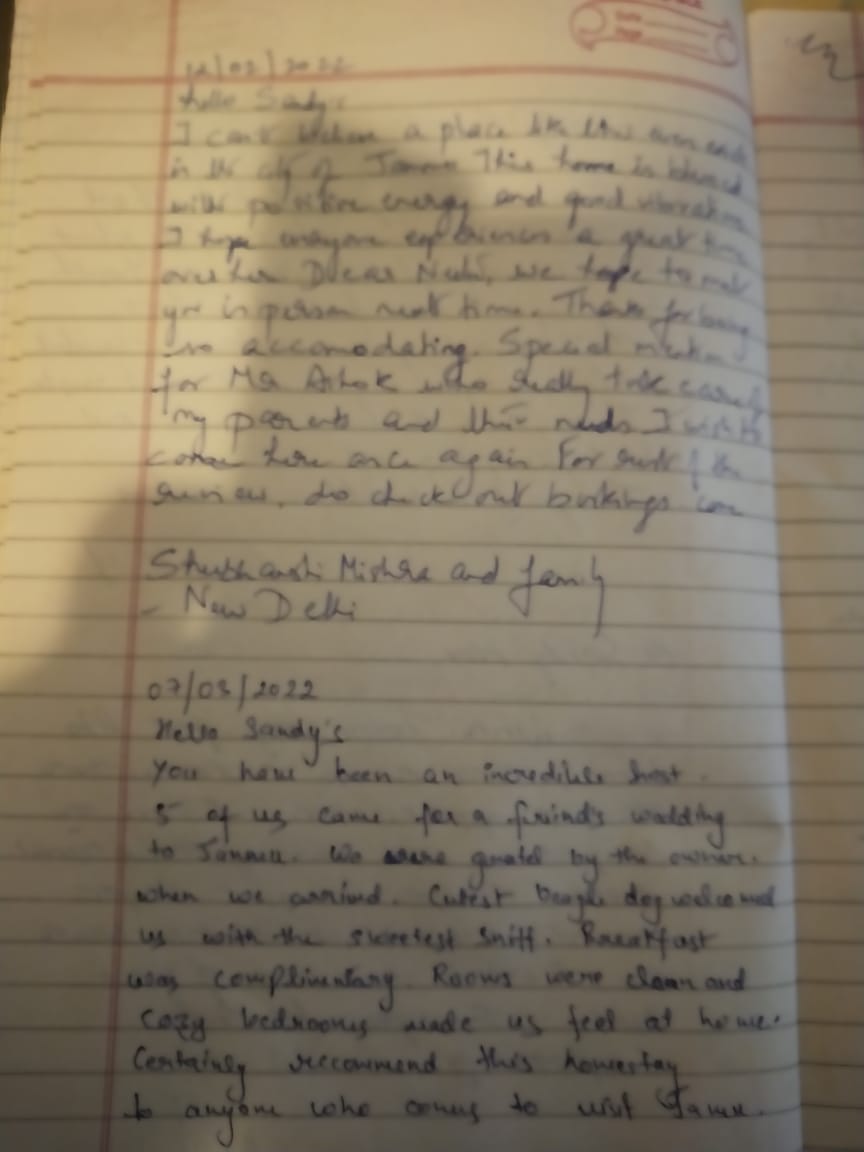 12/02/2022
Hello Sandy's
I can't believe a place like this even exists
in the city of Jammu This home is blessed
with positive energy and good vibrations
I hope everyone experiences a great time
over here Dear Nidhi, we hope to meet
you in person next time. Thanks for being
so accomodating. Special mention
for Mr Ashok who really took care of
my parents and their needs I wish to
come here once again For rest of the
review, do check out bookings com
Shubhanshi Mishra and family
- New Delhi
07/03/2022
Hello Sandy's
You have been an incredible host.
5 of us came for a friend's wedding
to Jammu. We were greeted by the owner.
when we arrived. Cutest beagle dog welcomed
us with the sweetest sniff. Breakfast
was complimentary. Rooms were clean and
cozy bedrooms made us feel at home.
Certainly recommend this homestay
to anyone who comes to visit Jammu.